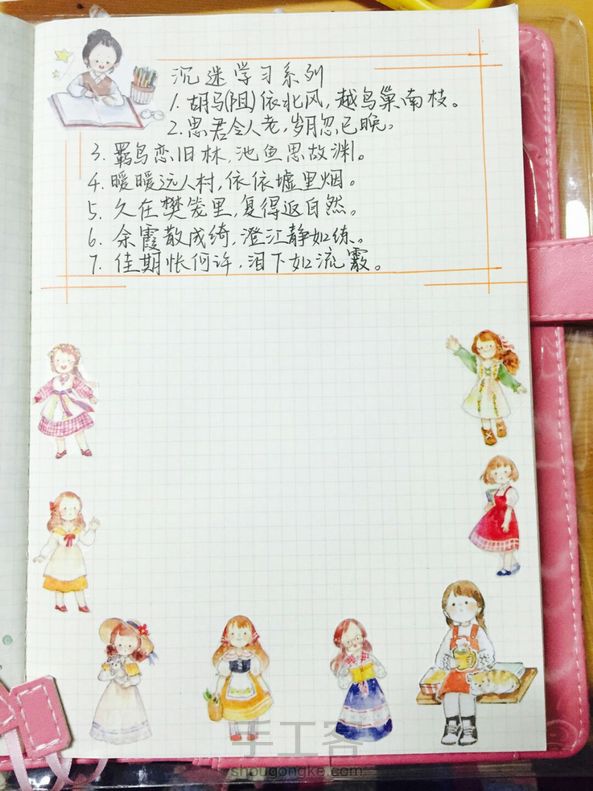 沉迷学习系列
1. 胡马(阻)依北风，越鸟巢南枝。
2. 思君令人老，岁月忽已晚。
3. 羁鸟恋旧林，池鱼思故渊。
4. 暖暖远人村，依依墟里烟。
5. 久在樊笼里，复得返自然。
6. 余霞散成绮，澄江静如练。
7. 佳期怅何许，泪下如流霰。
手工客
shougongke.com